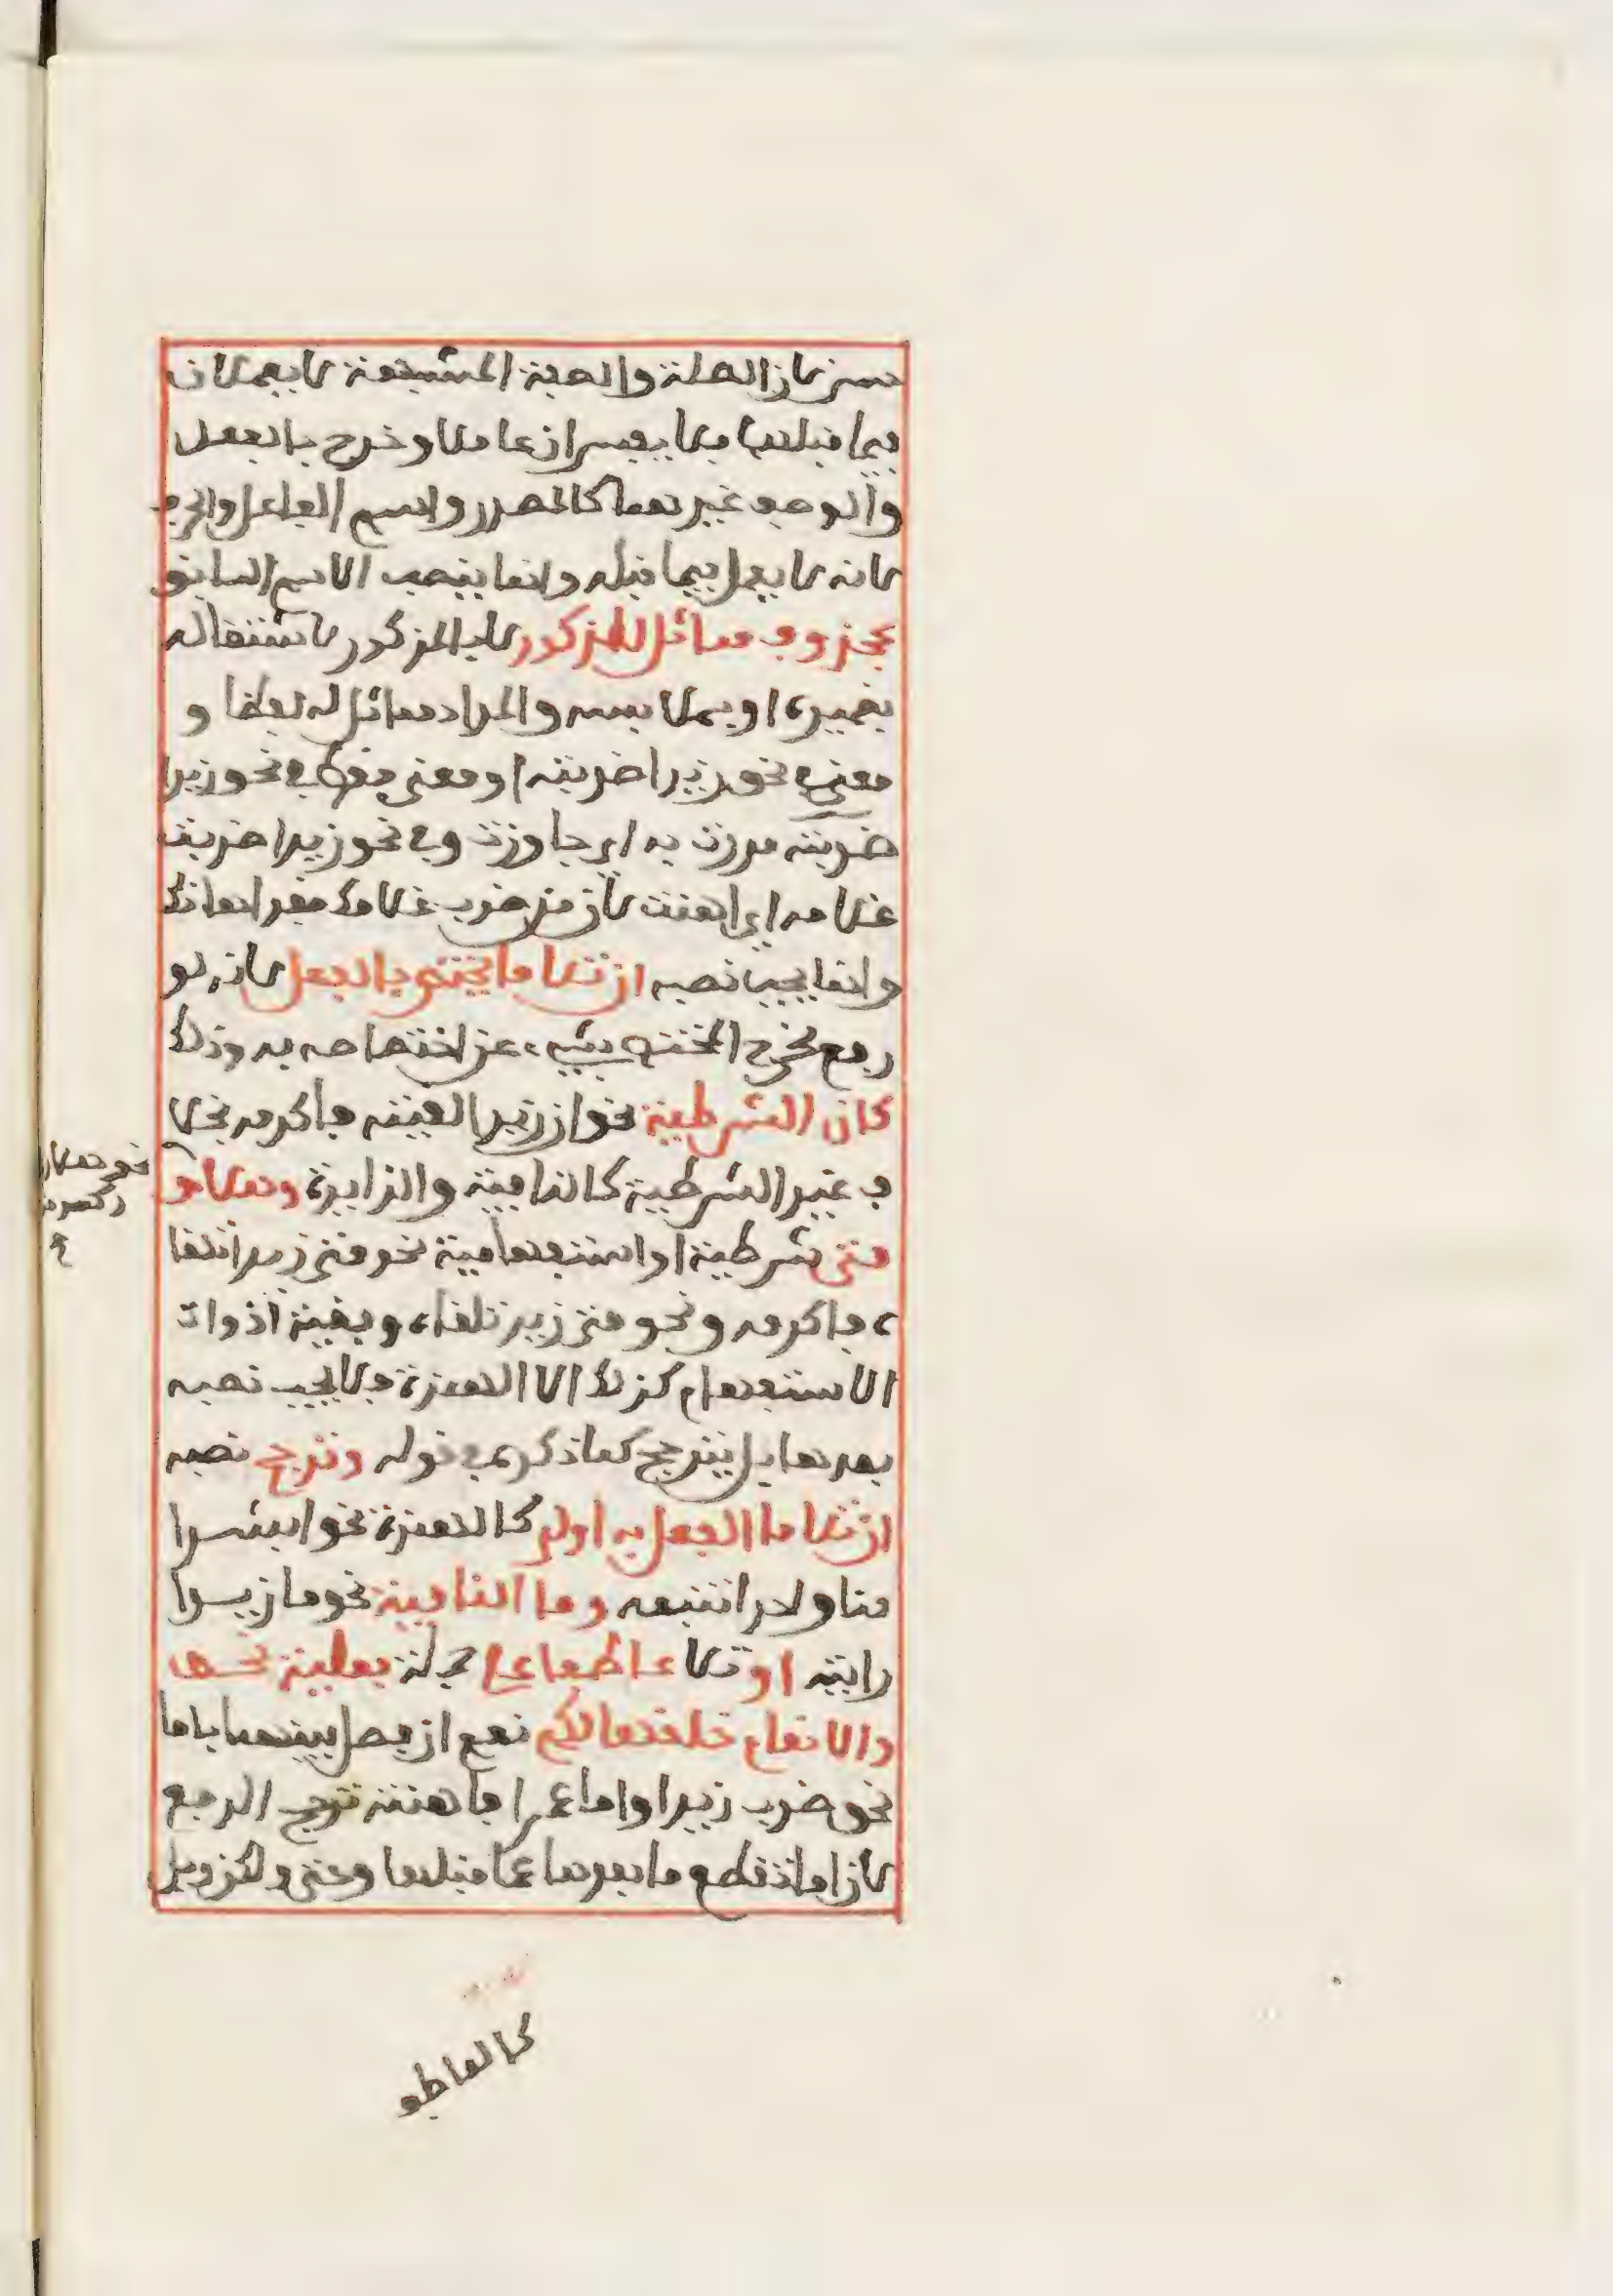 حسن لان الصلة والصفة المشبهة لا يعملان
فيما قبلهما فلا يفسران عاملا وخرج بالفعل
والوصف غيرهما كالمصدر واسم الفاعل والحرف
لانه لا يعمل فيما قبله وانما ينصب الاسم السابق
بمحذوف مماثل للمذكور اي المذكور لاشتغاله
بضميره او بملابسه والمراد مماثل له لفظا و
معنى في نحو زيدا ضربته او معنى فقط في نحو زيدا
ضربته مررت به اي جاوزت وفي نحو زيدا ضربت
غلامه اي اهنت لان من ضرب غلامك فقد اهانك
وانما يجب نصبه ان تلا ما يختص بالفعل لانه لو
رفع لخرج المختص بشيء عن اختصاصه به وذلك
كان الشرطية نحو ان زيدا لقيته فاكرمه بخلا
ف غير الشرطية كالنافية والزايدة وهلا و
متى شرطية او استفهامية نحو متى زيدا تلقا
ه فاكرمه ونحو متى زيد تلقاه وبقية ادوات
الاستفهام كذلك الا الهمزة فلا يجب نصبه
بعدها بل يترجح كما ذكره في قوله وترجح نصبه
ان تلا ما الفعل به اولى كالهمزة نحو ابشرا
منا واحدا نتبعه وما النافية نحو ما زيدا
رايته او تلا عاطفا على جملة فعلية نحو
والانعام خلقها لكم نعم ان فصل بينهما باما
نحو ضرب زيدا واما عمرا فاهنته ترجح الرفع
لان اما تقطع ما بعدها عما قبلها وحتى ولكن وبل
نحو هلا
كالعاطف